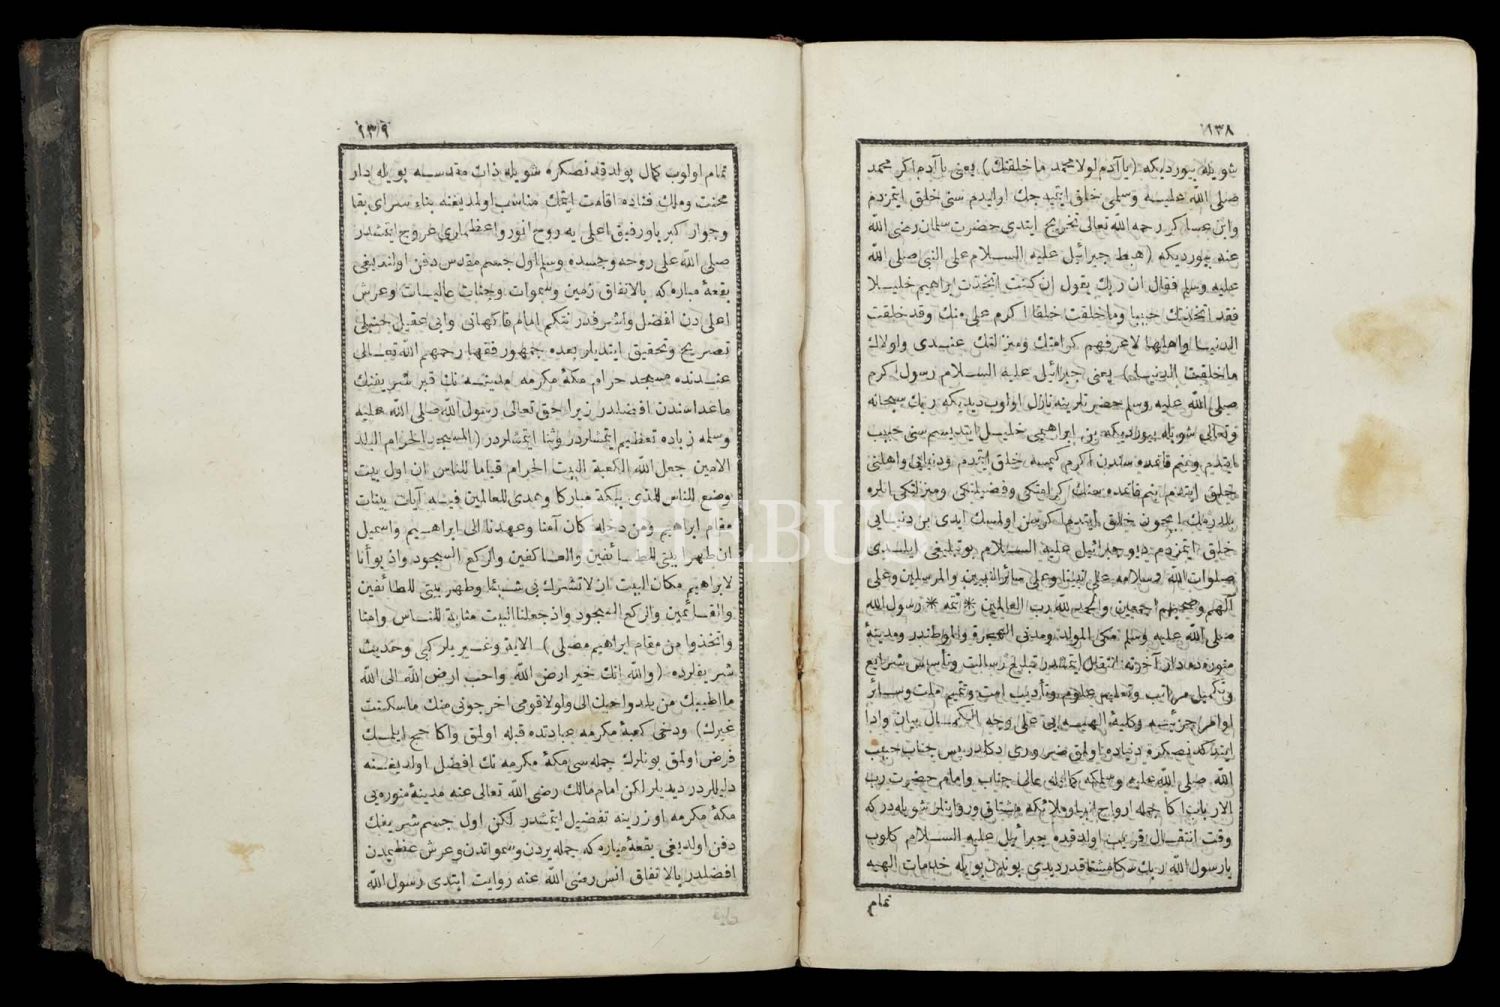 ١٣٨
شويله بيورديكه (يا آدم لولا محمد ما خلقتك) يعنى يا آدم اكر محمد
صلى الله عليه وسلمى خلق ايتميه جك اولايدم سنى خلق ايتمزدم
وابن عساكر رحمه الله تعالى تخريج ايتدى حضرت سلمان رضى الله
عنه بيورديكه (هبط جبرائيل عليه السلام على النبى صلى الله
عليه وسلم فقال ان ربك يقول ان كنت اتخذت ابراهيم خليلا
فقد اتخذتك حبيبا وما خلقت خلقا اكرم على منك وقد خلقت
الدنيا واهلها لاعرفهم كرامتك ومنزلتك عندى ولولاك
ما خلقت الدنيا) يعنى جبرائيل عليه السلام رسول اكرم
صلى الله عليه وسلم حضرتلرينه نازل اولوب ديديكه ربك سبحانه
وتعالى شويله بيورديكه بن ابراهيمى خليل ايتديسم سنى حبيب
ايتديم وبنم قاتمده سندن اكرم كيمسه خلق ايتمدم ودنيايى واهلنى
خلق ايتدم بنم قاتمده سنك كرامتكى وفضيلتكى ومنزلتكى انلره
بلدرمك ايچون خلق ايتدم اكر سن اولمسك ايدى بن دنيايى
خلق ايتمزدم ديو جبرائيل عليه السلام بو تبليغى ايلدى
صلوات الله وسلامه على نبينا وعلى سائر النبيين والمرسلين وعلى
آلهم وصحبهم اجمعين والحمد لله رب العالمين * تتمه * رسول الله
صلى الله عليه وسلم مكى المولد ومدنى الهجرة والموطندر ومدينۀ
منوره ده دار آخرته انتقال ايتمشدر تبليغ رسالت وتأسيس شرايع
وتكميل مراتب وتعليم علوم وتأديب امت وتتميم ملت وسائر
اوامر جزئيه وكليۀ الهيه يى على وجه الكمال بيان وادا
ايتدكدنصكره دنياده اولمق ضرورى دكلدر پس جناب حبيب
الله صلى الله عليه وسلمكه كمال ايله عالى جناب وامام حضرت رب
الاربابدر اكا جمله ارواح انبيا وملائكه مشتاق وروايتلر شويله دركه
وقت انتقال قريب اولدقده جبرائيل عليه السلام كلوب
يا رسول الله ربك سكا مشتاقدر ديدى بوندن بويله خدمات الهيه
تمام
١٣٩
تمام اولوب كمال بولدقدنصكره شويله ذات مقدسيه بويله دار
محنت وملك فناده اقامت ايتمك مناسب اولمديغنه بناء سراى بقا
وجوار كبريا ورفيق اعلى يه روح انور واعظملرى عروج ايتمشدر
صلى الله على روحه وجسده وسلم اول جسم مقدس دفن اولنديغى
بقعۀ مباركه بالاتفاق زمين وسموات وجنات عاليات وعرش
اعلى دن افضل واشرفدر نتكم امام فاكهانى وابى عقيل حنبلى
تصريح وتحقيق ايتديلر بعده جمهور فقها رحمهم الله تعالى
عندنده مسجد حرام مكۀ مكرمه مدينه نك قبر شريفنك
ماعداسندن افضلدر زيرا حق تعالى رسول الله صلى الله عليه
وسلمه زياده تعظيم ايتمشلردر وثنا ايتمشلردر (المسجد الحرام البلد
الامين جعل الله الكعبة البيت الحرام قياما للناس ان اول بيت
وضع للناس للذى ببكة مباركا وهدى للعالمين فيه آيات بينات
مقام ابراهيم ومن دخله كان آمنا وعهدنا الى ابراهيم واسمعيل
ان طهرا بيتى للطائفين والعاكفين والركع السجود واذ بوأنا
لابراهيم مكان البيت ان لا تشرك بى شيئا وطهر بيتى للطائفين
والقائمين والركع السجود واذ جعلنا البيت مثابة للناس وامنا
واتخذوا من مقام ابراهيم مصلى) الاية وغيريلر كبى وحديث
شريفلرده (والله انك خير ارض الله واحب ارض الله الى الله
ما اطيبك من بلد واحبك الى ولولا قومى اخرجونى منك ما سكنت
غيرك) ودخى كعبۀ مكرمه عبادتده قبله اولمق واكا حج ايلمك
فرض اولمق بونلرك جمله سى مكۀ مكرمه نك افضل اولديغنه
دليللردر ديديلر لكن امام مالك رضى الله تعالى عنه مدينۀ منوره يى
مكۀ مكرمه اوزرينه تفضيل ايتمشدر لكن اول جسم شريفك
دفن اولديغى بقعۀ مباركه جمله يردن وسمواتدن وعرش عظيمدن
افضلدر بالاتفاق انس رضى الله عنه روايت ايتدى رسول الله
PHEBUS